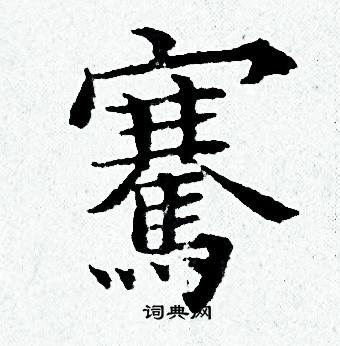 騫
词典网